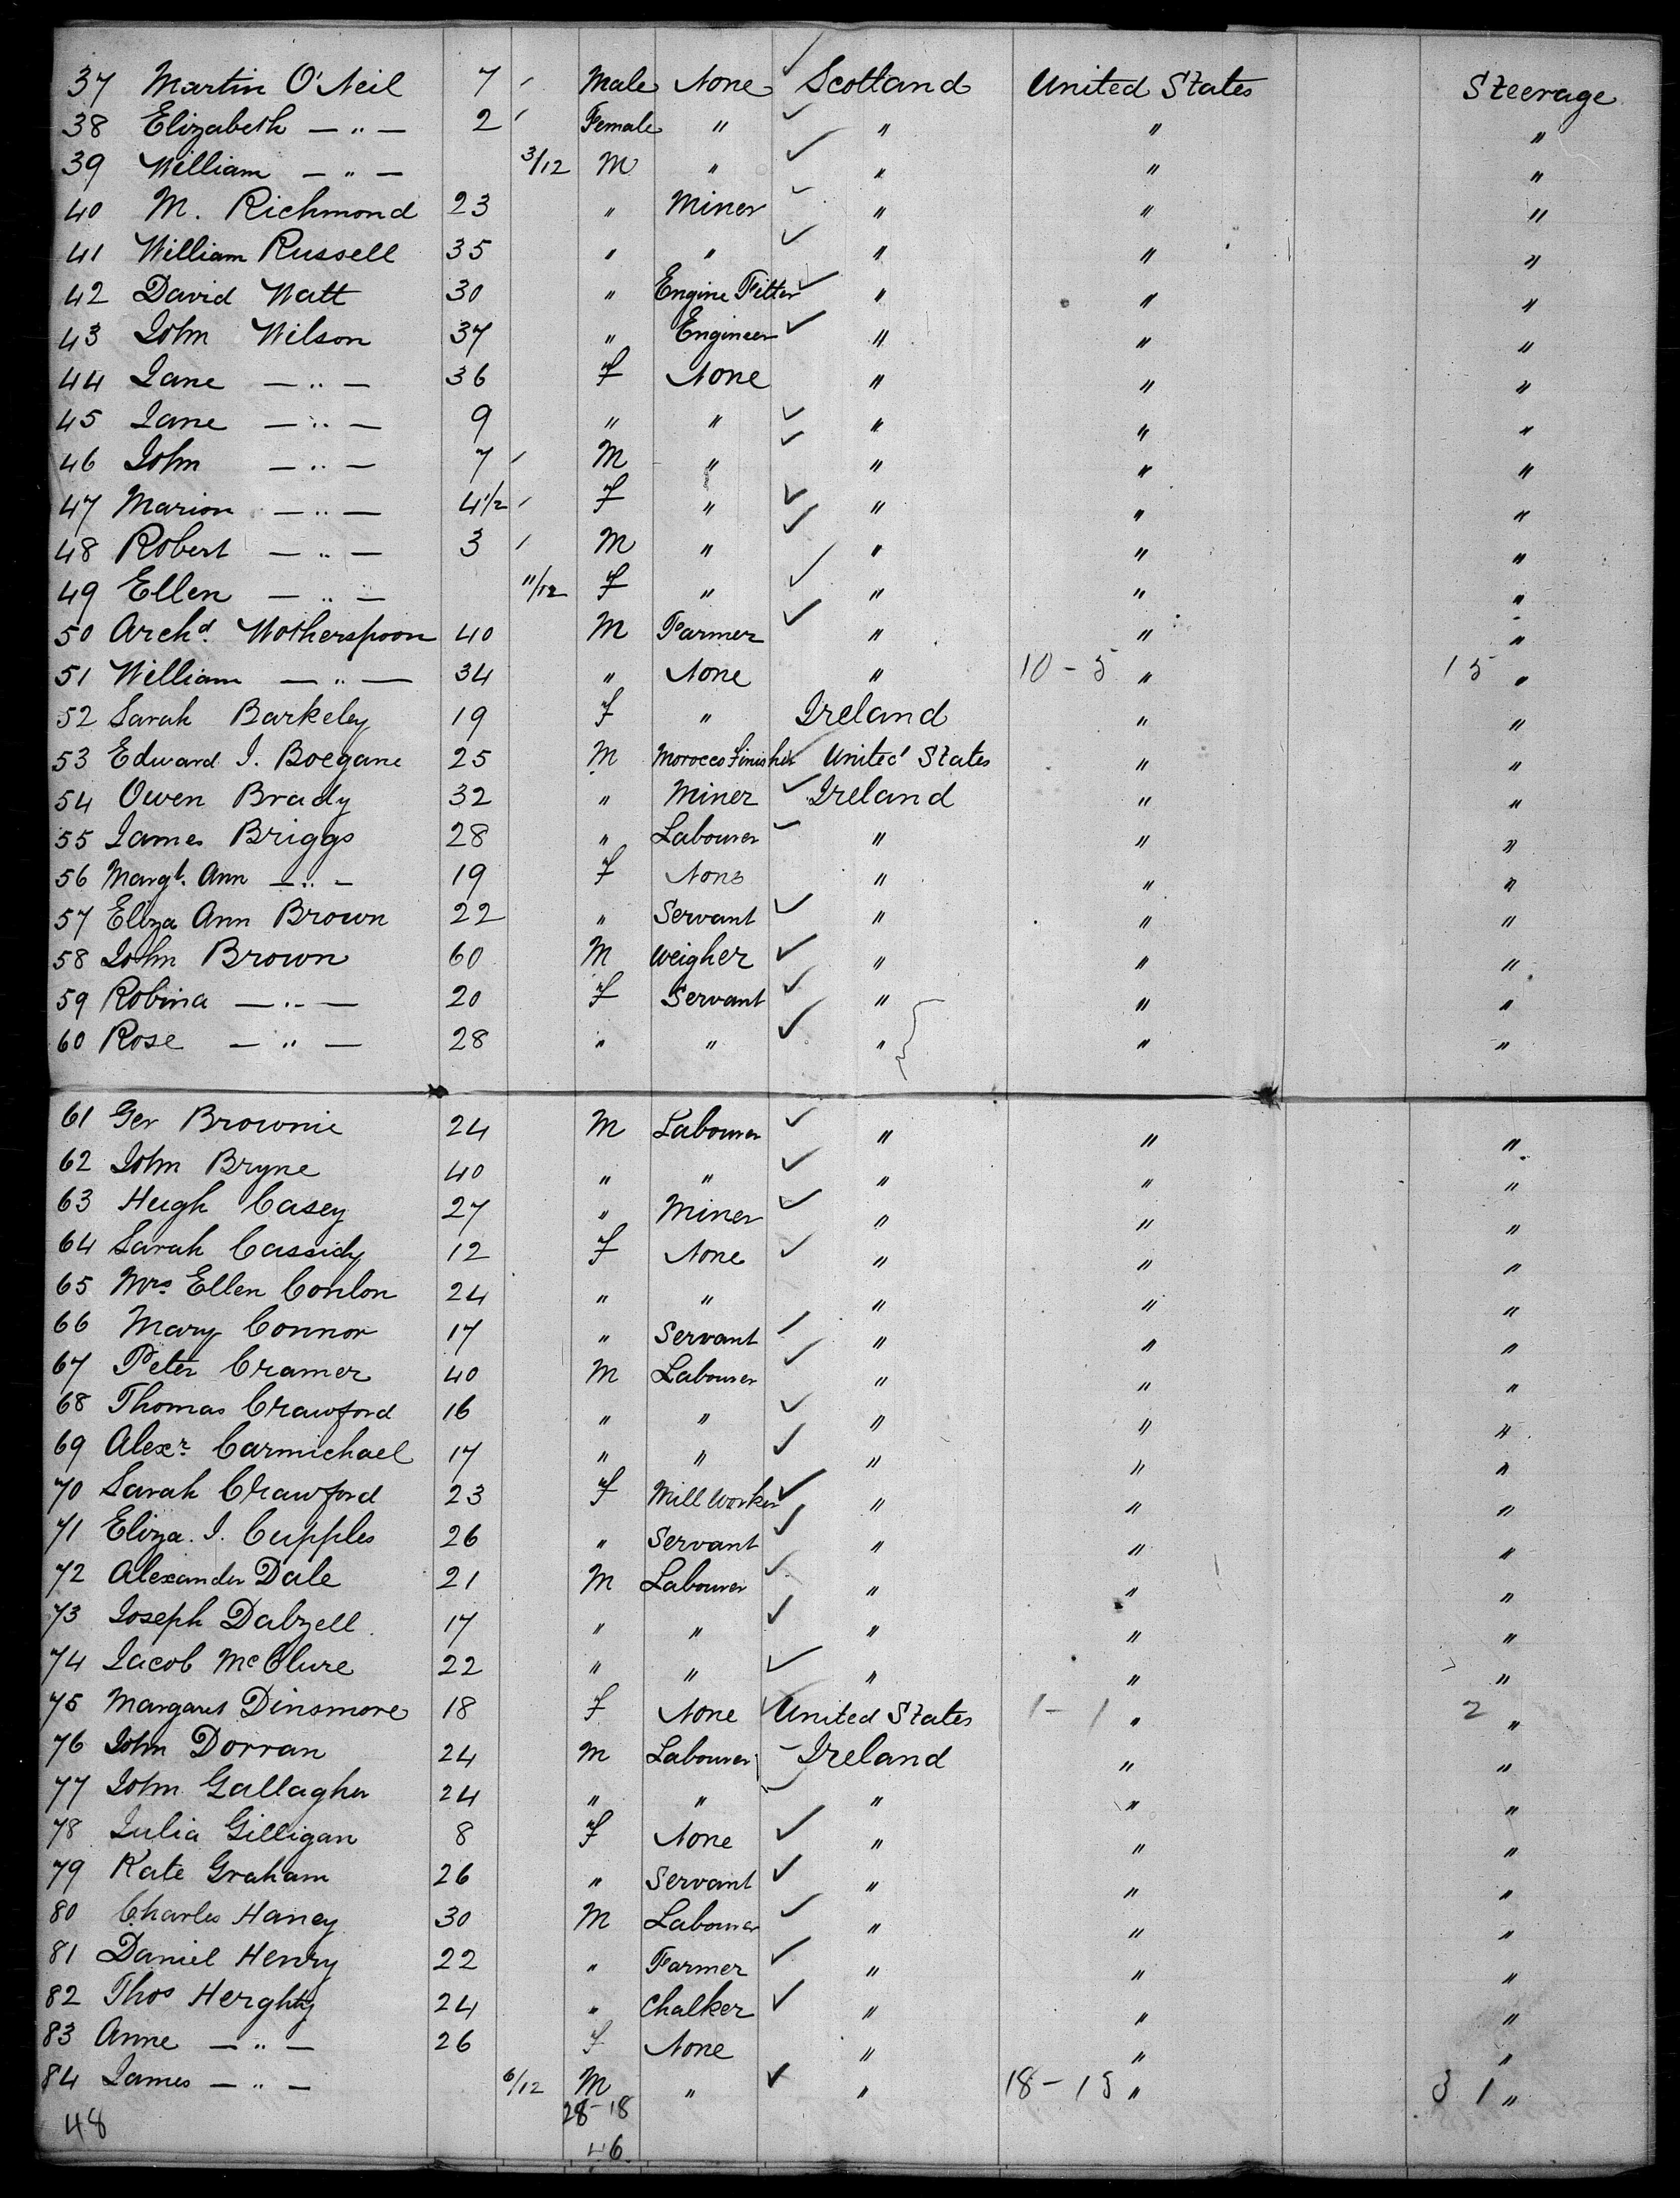 37 Martin O'Neil 7 Male None Scotland United States Steerage
38 Elizabeth — " — 2 Female " " " "
39 William — " — 3/12 M " " " "
40 M. Richmond 23 " Miner " " "
41 William Russell 35 " " " " "
42 David Watt 30 " Engine Fitter " " "
43 John Wilson 37 " Engineer " " "
44 Jane — " — 36 f None " " "
45 Jane — " — 9 " " " " "
46 John — " — 7 M " " " "
47 Marion — " — 4 1/2 f " " " "
48 Robert — " — 3 M " " " "
49 Ellen — " — 11/12 f " " " "
50 Archd. Wotherspoon 40 M Farmer " " "
51 William — " — 34 " None " 10 - 5 " 15 "
52 Sarah Barkeley 19 f " Ireland " "
53 Edward J. Boegane 25 M Morocco Finisher United States " "
54 Owen Brady 32 " Miner Ireland " "
55 James Briggs 28 " Labourer " " "
56 Margt. Ann — " — 19 f None " " "
57 Eliza Ann Brown 22 " Servant " " "
58 John Brown 60 M Weigher " " "
59 Robina — " — 20 f Servant " " "
60 Rose — " — 28 " " " " "
61 Ger Brownie 24 M Labourer " " "
62 John Bryne 40 " " " " "
63 Hugh Casey 27 " Miner " " "
64 Sarah Cassidy 12 f None " " "
65 Mrs Ellen Conlon 24 " " " " "
66 Mary Connor 17 " Servant " " "
67 Peter Cramer 40 M Labourer " " "
68 Thomas Crawford 16 " " " " "
69 Alexr. Carmichael 17 " " " " "
70 Sarah Crawford 23 f Mill Worker " " "
71 Eliza. J. Cupples 26 " Servant " " "
72 Alexander Dale 21 M Labourer " " "
73 Joseph Dalzell 17 " " " " "
74 Jacob McClure 22 " " " " "
75 Margaret Dinsmore 18 f None United States 1 - 1 " 2 "
76 John Dorran 24 M Labourer Ireland " "
77 John Gallagher 24 " " " " "
78 Julia Gilligan 8 f None " " "
79 Kate Graham 26 " Servant " " "
80 Charles Haney 30 M Labourer " " "
81 Daniel Henry 22 " Farmer " " "
82 Thos Herghty 24 " Chalker " " "
83 Anne — " — 26 f None " " "
84 James — " — 6/12 M " " 18 - 13 " 31 "
48 28-18
46